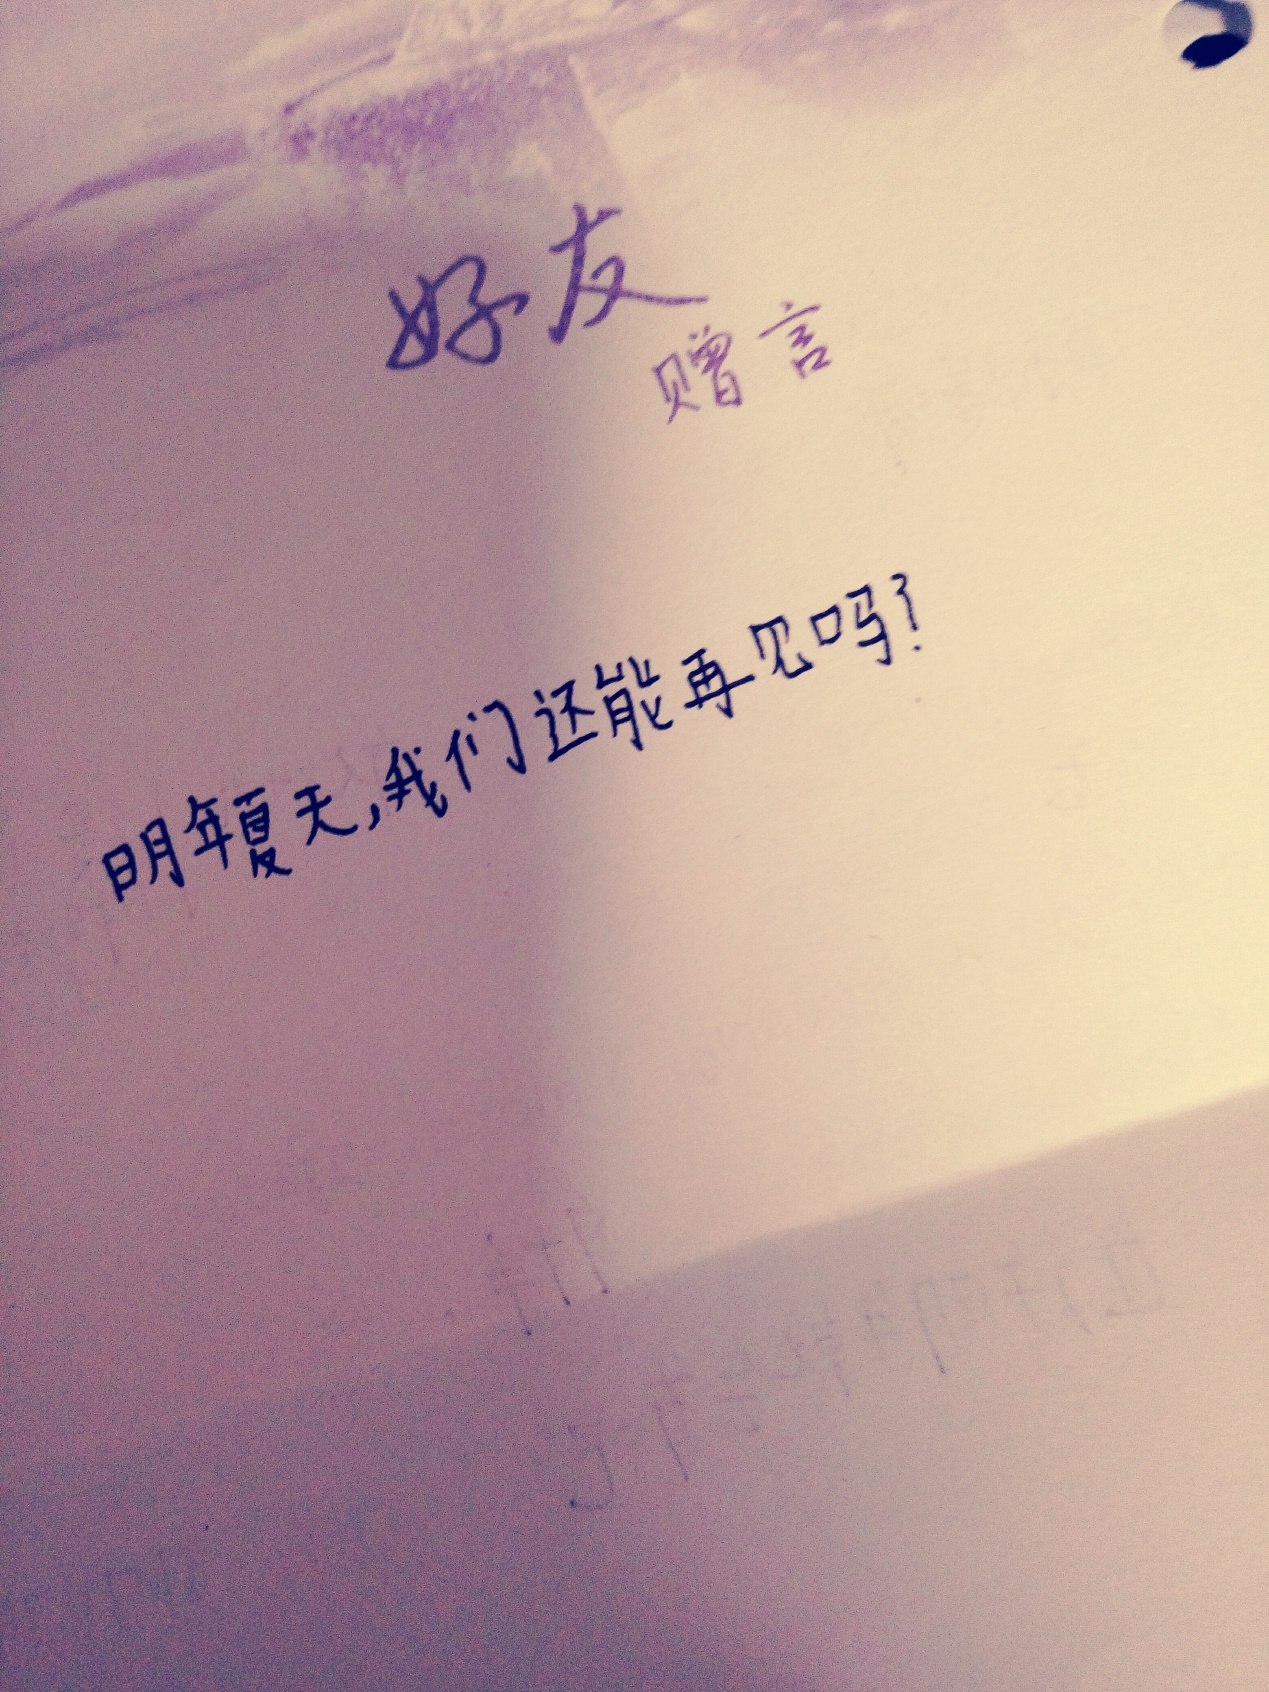 好友
赠言
明年夏天,我们还能再见吗?